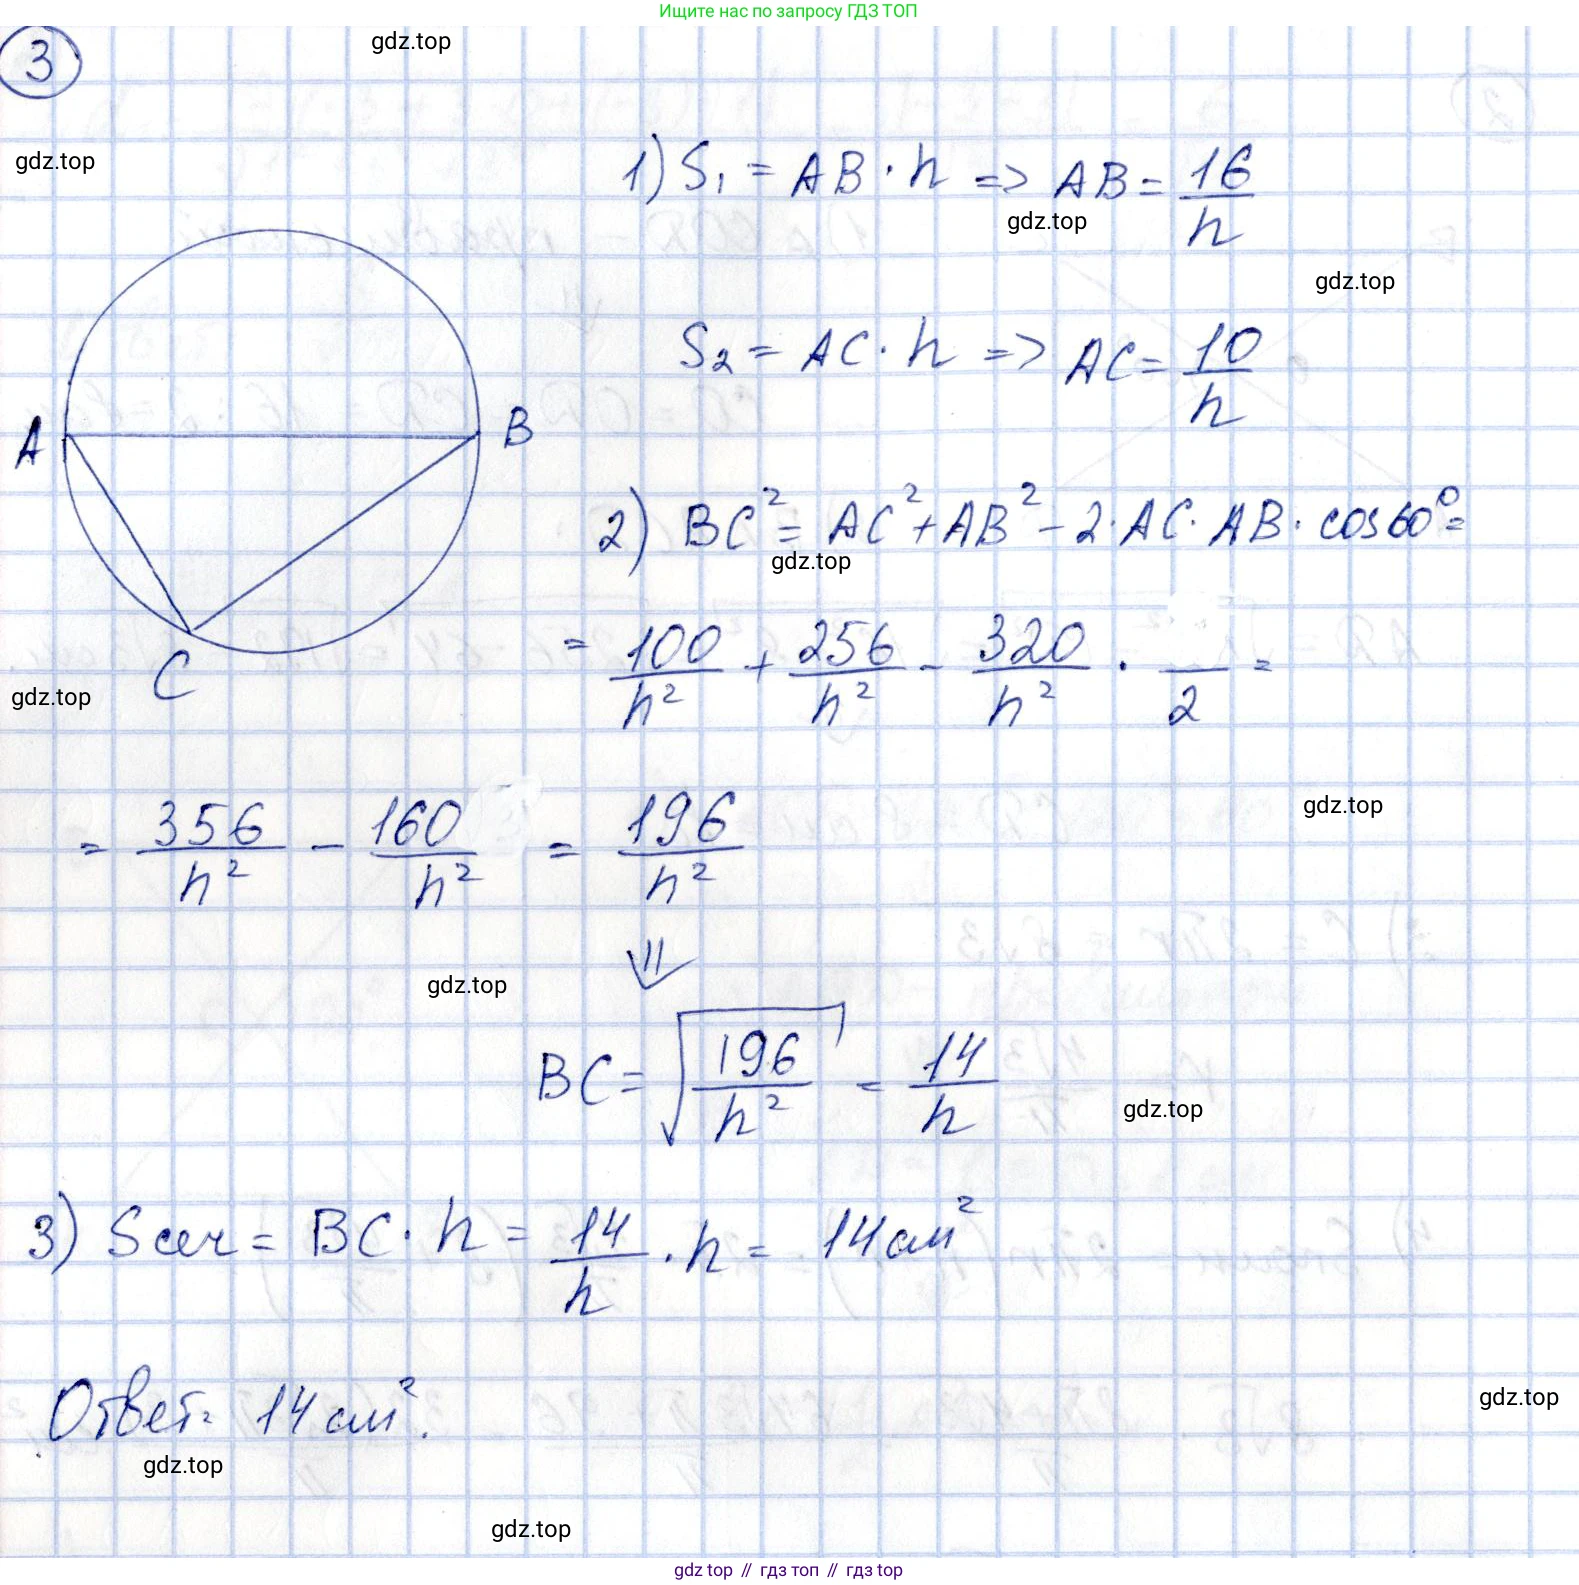 Ищите нас по запросу ГДЗ ТОП
3
gdz.top
gdz.top
1) S₁ = AB · h => AB = 16/h
gdz.top
gdz.top
S₂ = AC · h => AC = 10/h
A
B
C
2) BC² = AC² + AB² - 2 · AC · AB · cos 60° =
gdz.top
= 100/h² + 256/h² - 320/h² · /2 =
gdz.top
= 356/h² - 160/h² = 196/h²
gdz.top
⇓
gdz.top
BC = √(196/h²) = 14/h
gdz.top
3) Sсеч = BC · h = 14/h · h = 14 см²
Ответ: 14 см².
gdz.top
gdz.top
gdz.top
gdz top // гдз топ // гдз top